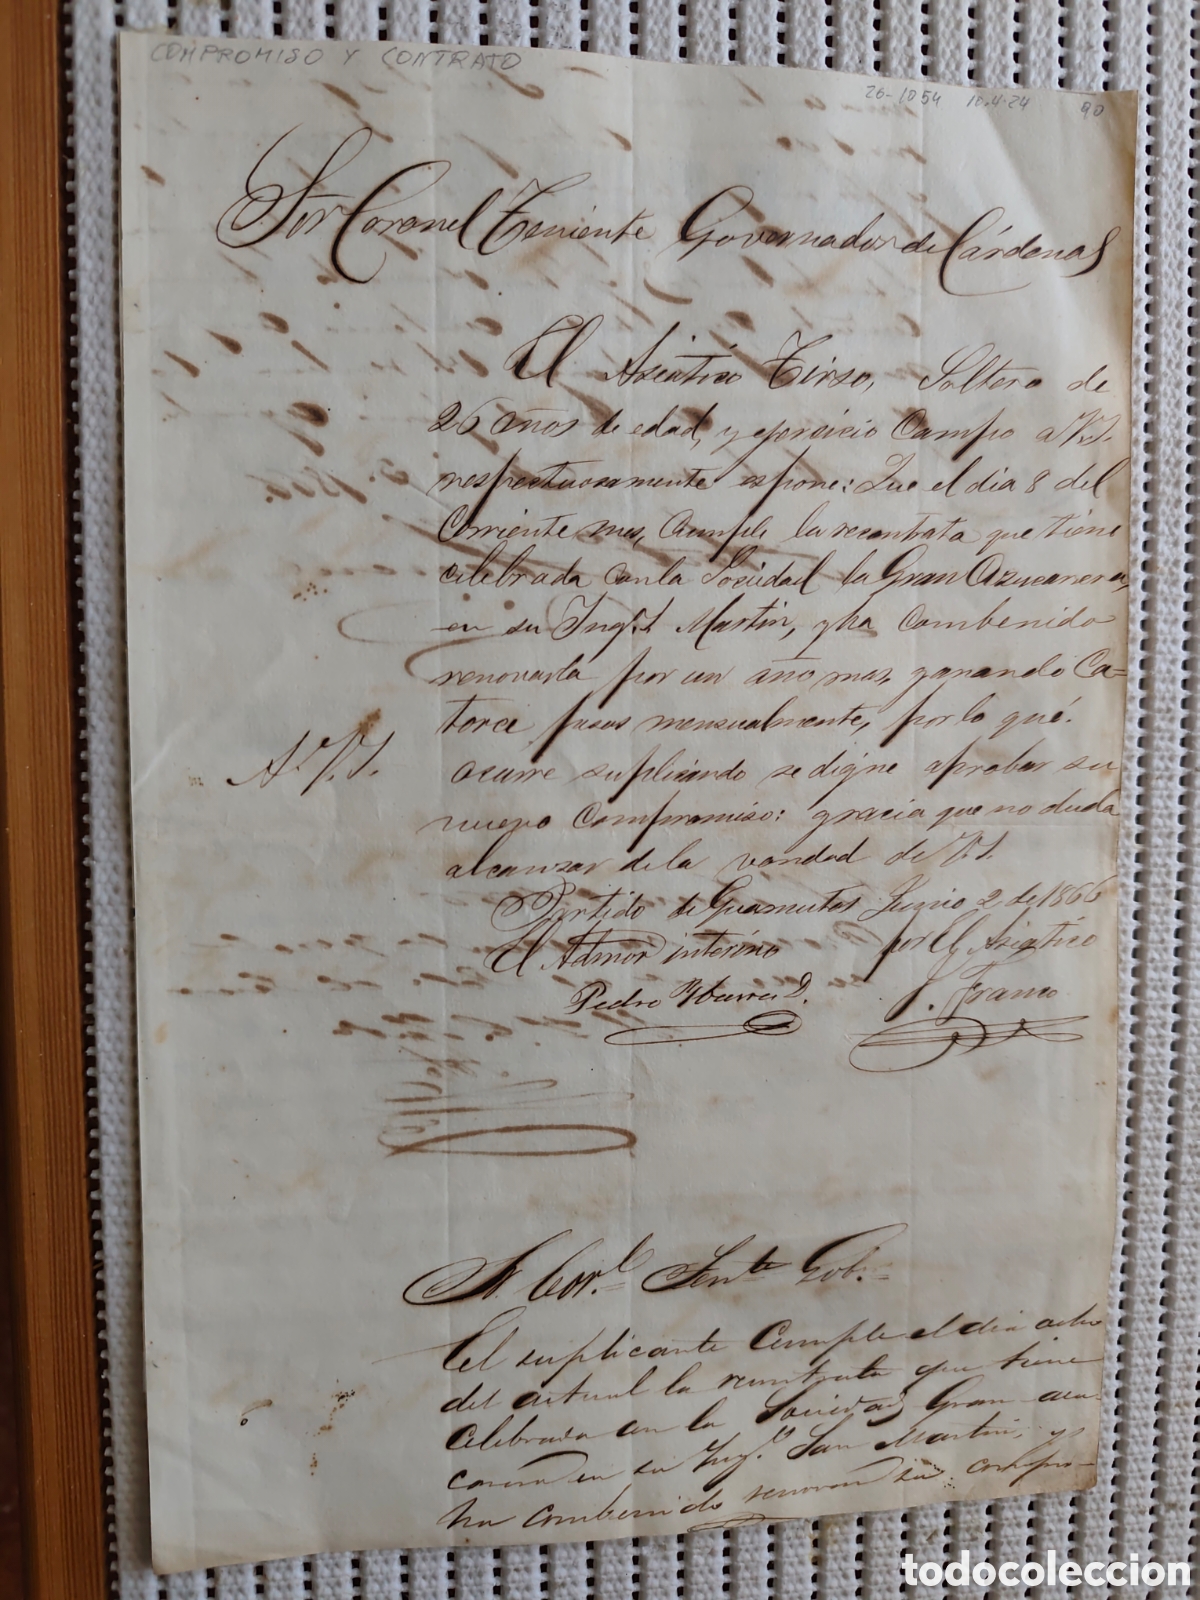 COMPROMISO Y CONTRATO
26-1054 10.4.24 90
Sor Coronel Teniente Governador de Cárdenas
El Asiatico Tirso, Soltero de
26 años de edad, y ejercicio Campo a V.S.
respectuosamente espone: Que el dia 8 del
Corriente mes, Cumple la recontrata que tiene
celebrada con la Sociedad la Gran Azucarera,
en su Ingº S. Martin, y ha combenido
renovarla por un año mas, ganando Ca=
torce pesos mensualmente, por lo qué.
A. V. S. ocurre suplicando se digne aprobar su
nuevo Compromiso: gracia que no duda
alcanzar de la vondad de V.S.
Partido de Guamutas Junio 2 de 1866
El Admor interino por El Asiatico
Pedro Ybarra J. Franco
Sr Corl. Tente Gob.=
El suplicante Cumple el dia ocho
del actual la recontrata que tiene
Celebrada con la Sociedad Gran azu-
carera en su Ingº San Martin, y
ha combenido renovar su compro-
todocoleccion